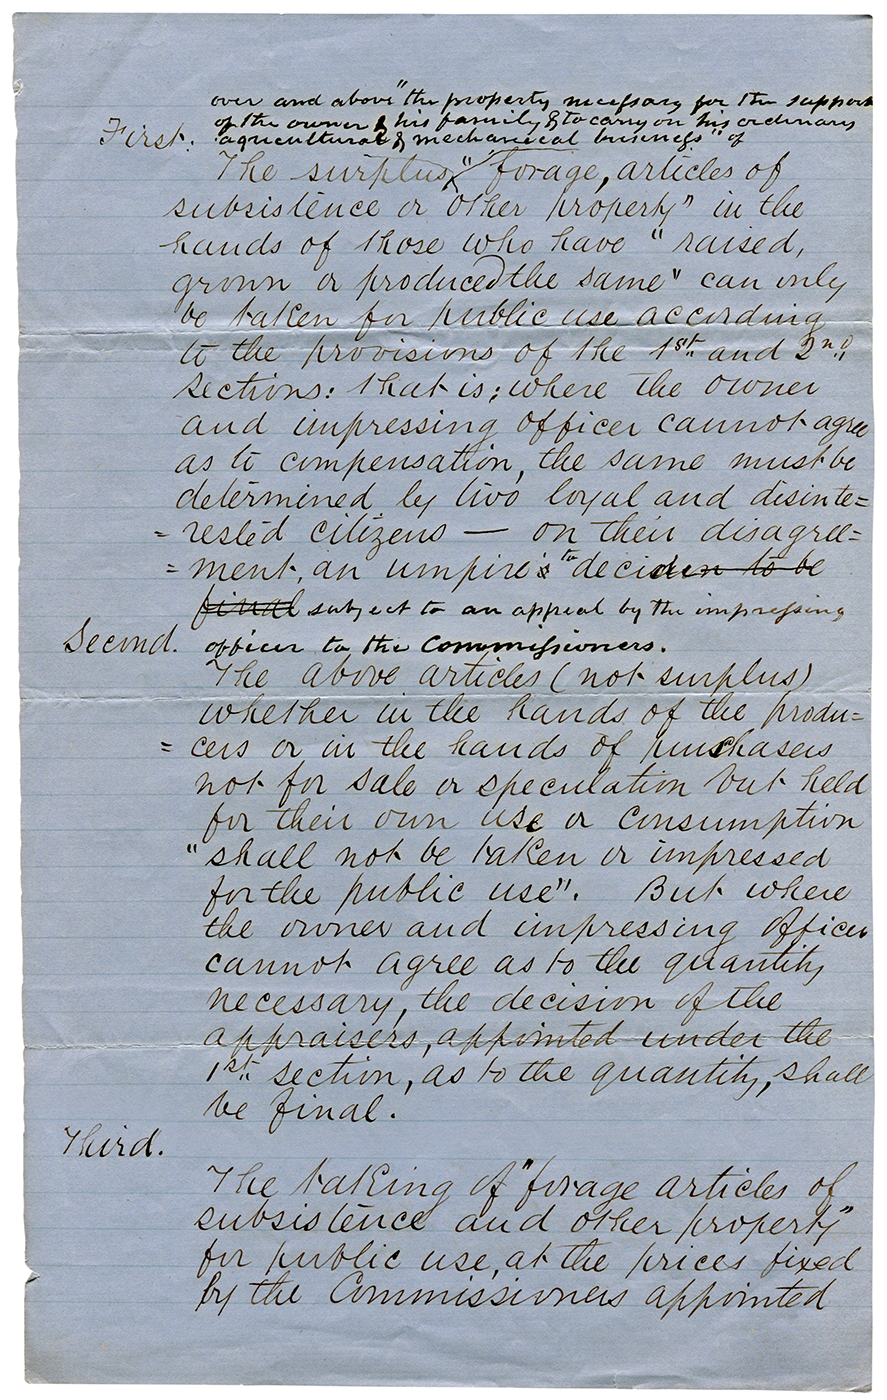 over and above "the property necessary for the support
of the owner & his family & to carry on his ordinary
First. agricultural & mechanical business" of
The surplus "forage, articles of
subsistence or other property" in the
hands of those who have "raised,
grown or produced the same" can only
be taken for public use according
to the provisions of the 1st. and 2nd.
sections: that is; where the owner
and impressing officer cannot agree
as to compensation, the same must be
determined by two loyal and disinte=
=rested citizens — on their disagree=
=ment, an umpire is to deciden to be
final subject to an appeal by the impressing
Second. officer to the Commissioners.
The above articles (not surplus)
whether in the hands of the produ=
=cers or in the hands of purchasers
not for sale or speculation but held
for their own use or consumption
"shall not be taken or impressed
for the public use". But where
the owner and impressing officer
cannot agree as to the quantity
necessary, the decision of the
appraisers, appointed under the
1st. section, as to the quantity, shall
be final.
Third.
The taking of "forage articles of
subsistence and other property"
for public use, at the prices fixed
by the Commissioners appointed